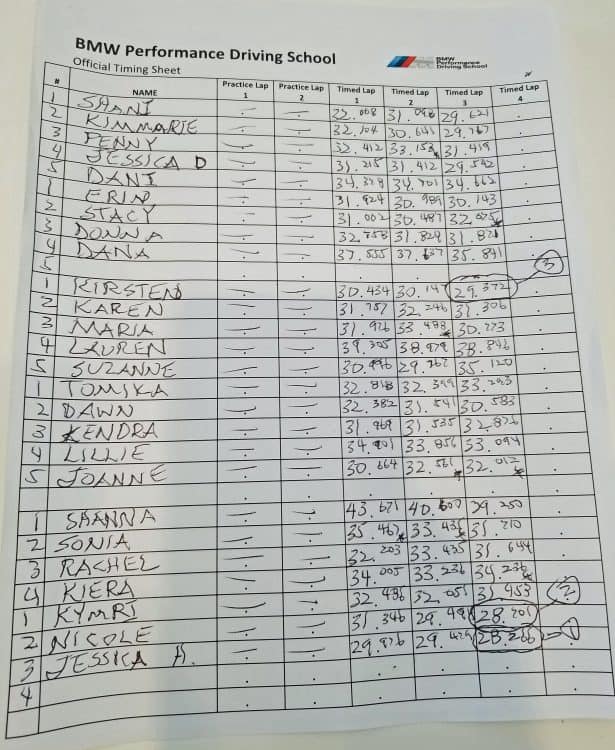 BMW Performance Driving School
Official Timing Sheet
BMW Performance Driving School
# NAME Practice Lap 1 Practice Lap 2 Timed Lap 1 Timed Lap 2 Timed Lap 3 Timed Lap 4
1 SHANI 31.098 29.621
2 KIMMARIE 32.104 30.641 29.767
3 PENNY 32.412 33.153* 31.419
4 JESSICA D 31.215 31.412 29.542
5 DANI 34.378 34.701 34.662
1 ERIN 31.924 30.989 30.143
2 STACY 31.002 30.487 32.025*
3 DONNA 32.758 31.829 31.821
4 DANA 37.555 37.637 35.841
5
1 KIRSTEN 30.434 30.147 29.372 3
2 KAREN 31.757 32.246 31.306
3 MARIA 31.926 33.488* 30.773
4 LAUREN 39.305 38.979 38.846
5 SUZANNE 30.996 29.762 35.120
1 TOMIKA 32.818 32.399 33.293
2 DAWN 32.382 31.541 30.583
3 KENDRA 31.969 31.535 32.826
4 LILLIE 34.901 33.856 33.094
5 JOANNE 30.664 32.561* 32.012*
1 SHANNA 43.671 40.600
2 SONIA 35.467* 33.435* 31.710
3 RACHEL 32.203 33.435 31.644
4 KIERA 34.005 33.236 34.236*
1 KYMRI 32.486 32.051 31.453
2 NICOLE 31.346 29.491 28.701 2
3 JESSICA H. 29.926 29.429 28.266 1
4